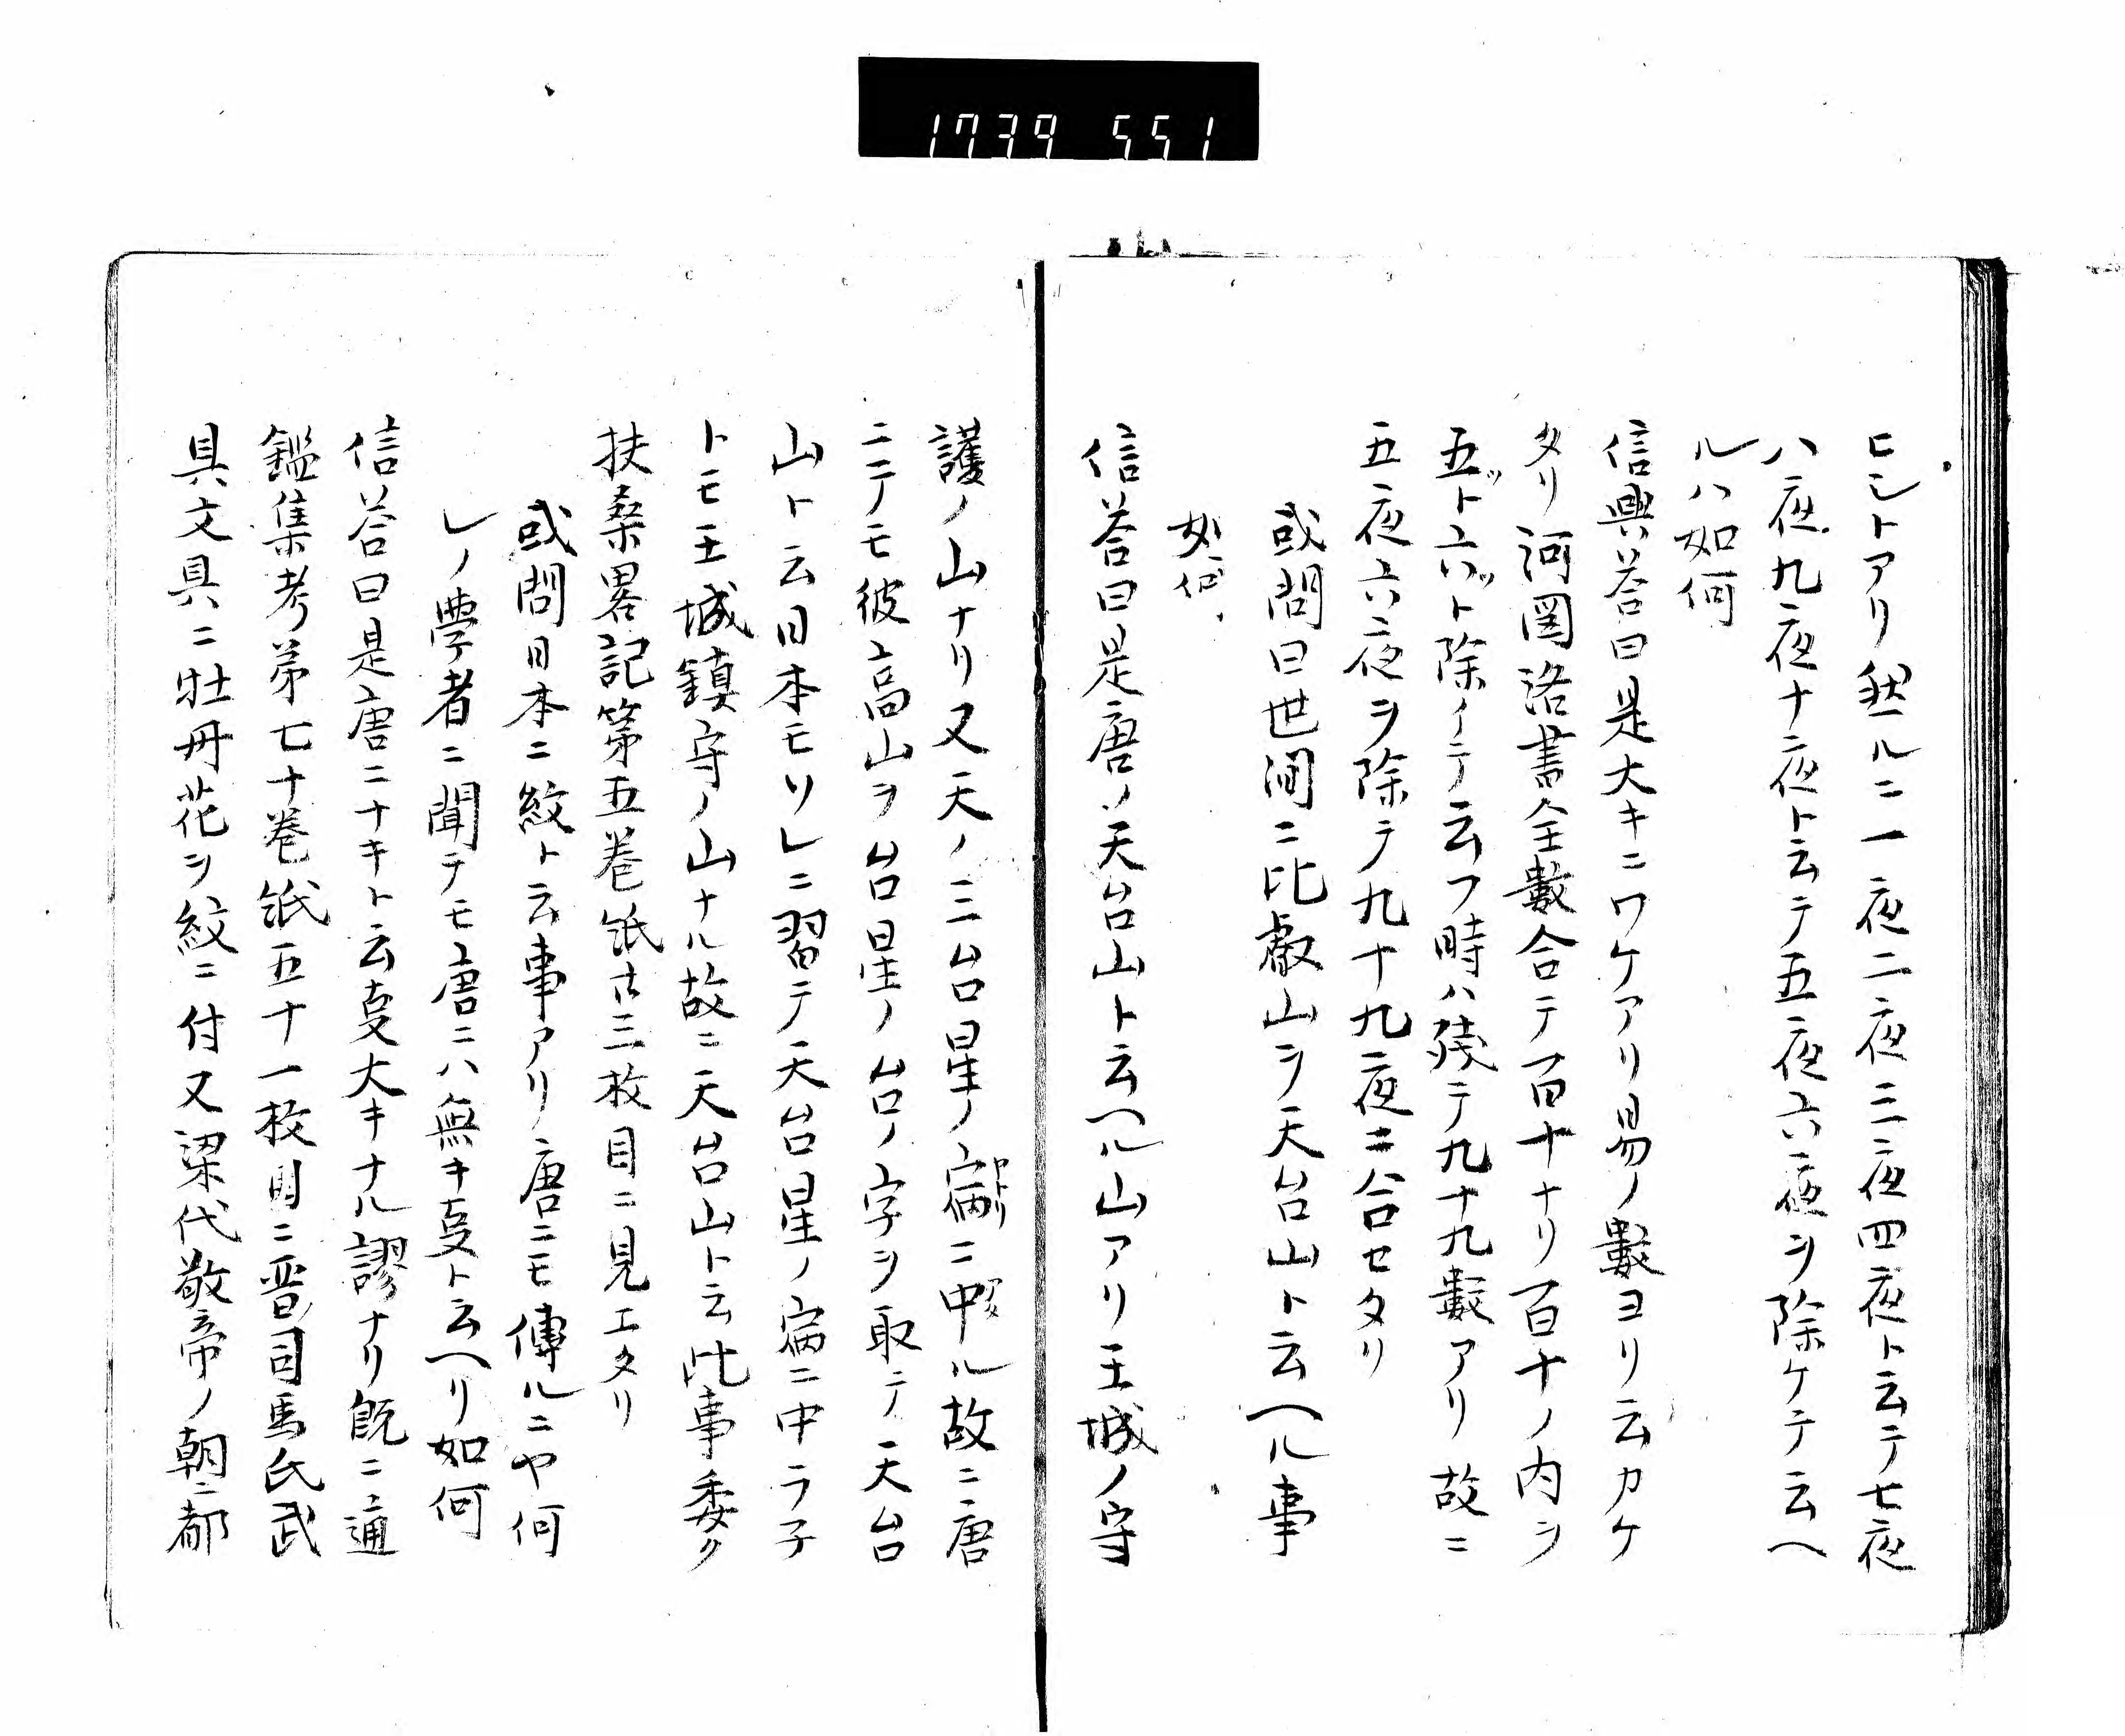 1739 551
ヒシトアリ然ルニ一夜二夜三夜四夜ト云テ七夜
八夜九夜十夜ト云テ五夜六夜ヲ除ケテ云ヘ
ルハ如何
信興答曰是大キニワケアリ易ノ數ヨリ云カケ
タリ河圖洛書全數合テ百十ナリ百十ノ内ヲ
五ツト六ツト除イテ云フ時ハ残テ九十九數アリ故ニ
五夜六夜ヲ除テ九十九夜ニ合セタリ
或問曰世間ニ比叡山ヲ天台山ト云ヘル事
如何
信答曰是唐ノ天台山ト云ヘル山アリ王城ノ守
護ノ山ナリ又天ノ三台星ノ ヤトリニ中ル故ニ唐
ニテモ彼高山ヲ台星ノ台ノ字ヲ取テ天台
山ト云日本モソレニ習テ天台星ノ ニ中ラ子
トモ王城鎮守ノ山ナル故ニ天台山ト云此事委ク
扶桑畧記第五巻紙廿三枚目ニ見エタリ
或問日本ニ紋ト云事アリ唐ニモ傳ルニヤ何
レノ學者ニ聞テモ唐ニハ無キ㕝ト云ヘリ如何
信答曰是唐ニナキト云㕝大キナル謬ナリ既ニ通
鑑集考第七十巻紙五十一枚目ニ晋司馬氏武
具文具ニ牡丹花ヲ紋ニ付又梁代敬帝ノ朝ニ都